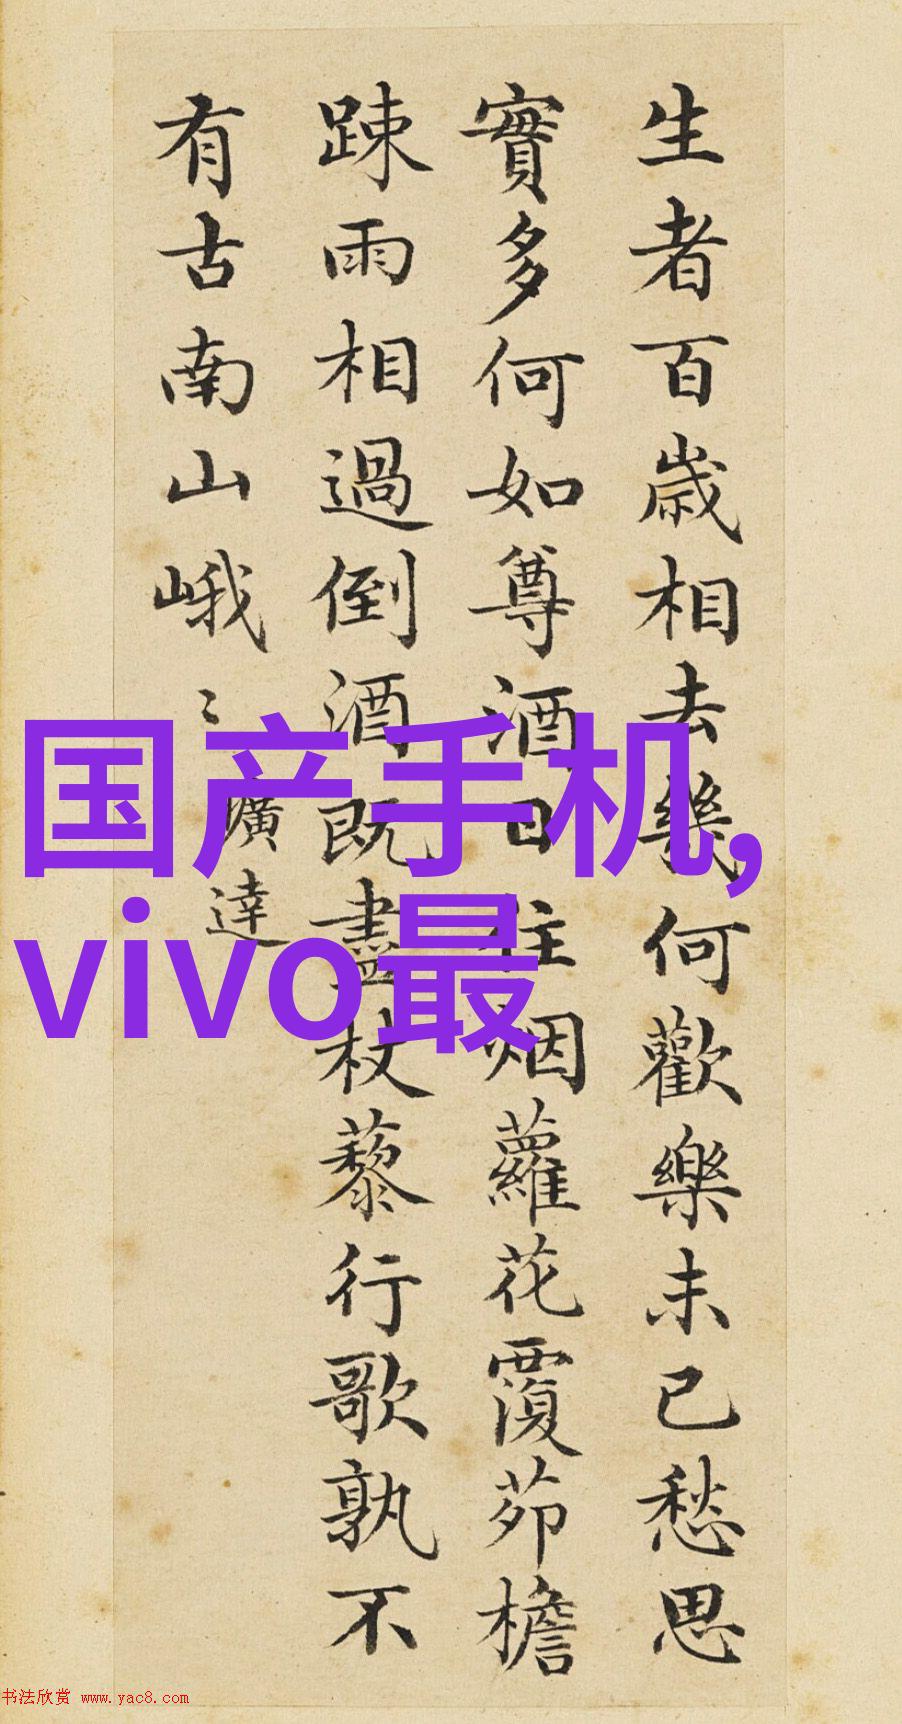 生者百歳相去幾何歡樂未已愁思
實多何如尊酒日往烟蘿花覆茆檐
踈雨相過倒酒既盡杖藜行歌孰不
有古南山峨〻
曠達
国产手机,
vivo最
书法欣赏 www.yac8.com